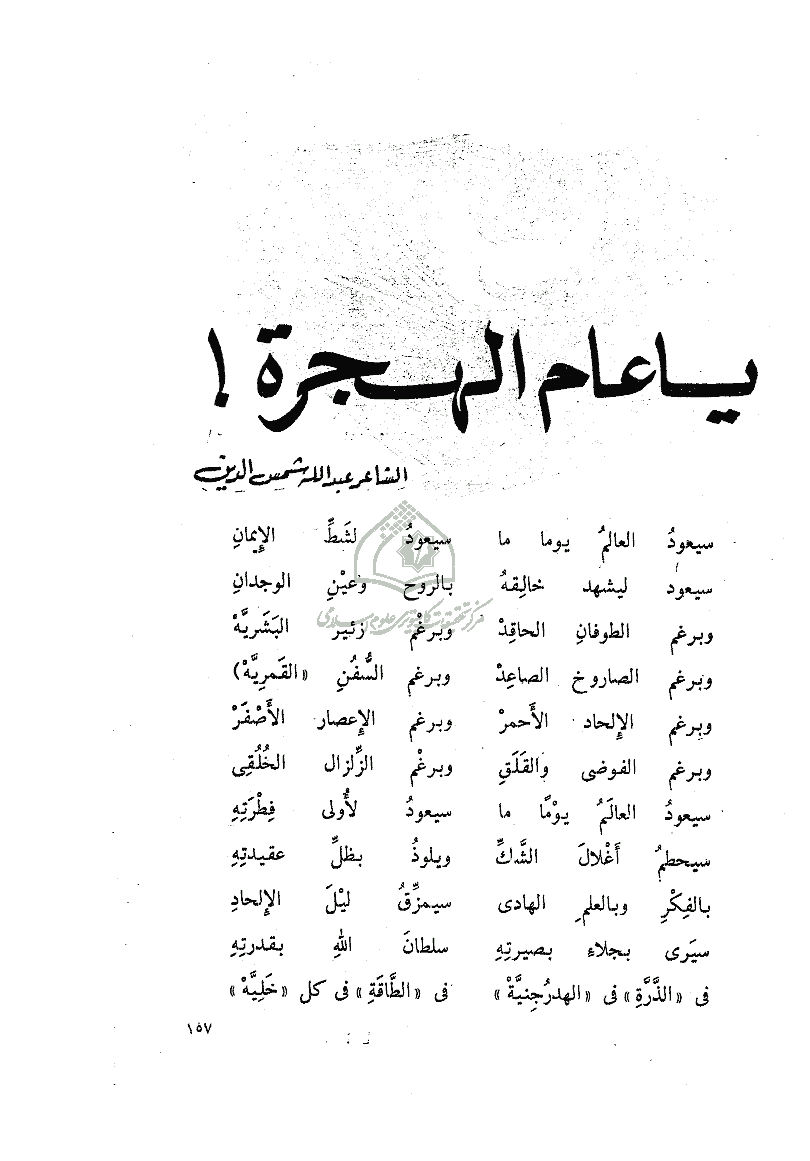 يا عام الهجرة !
الشاعر عبدالله شمس الدين
سيعودُ العالمُ يوما ما سيعودُ لشَطِّ الإِيمانِ
سيعود ليشهد خالِقهُ بالروح وعيْنِ الوجدانِ
وبرغم الطوفانِ الحاقِدْ وبرغْم زئير البَشَريَّهْ
وبرغم الصاروخ الصاعِدْ وبرغم السُّفُنِ «القَمريَّهْ)
وبرغم الإِلحاد الأَحمرْ وبرغم الإِعصار الأَصْفَرْ
وبرغم الفوضى والقَلَقِ وبرغْم الزِّلزال الخُلُقِى
سيعودُ العالَمُ يوْمًا ما سيعودُ لأُولى فِطْرَتِهِ
سيحطمُ أَغْلالَ الشَّكِّ ويلوذُ بظلِّ عقيدتِهِ
بالفِكْرِ وبالعلمِ الهادى سيمزِّقُ ليْلَ الإِلحادِ
سيَرى بجلاءِ بصيرتِهِ سلطانَ اللهِ بقدرتِهِ
فى «الذَّرَّةِ» فى «الهدرُجنيَّهْ» فى «الطَّاقَةِ» فى كل «خَلِيَّهْ»
١٥٧
مركز تحقیقات کامپیوتری علوم اسلامی